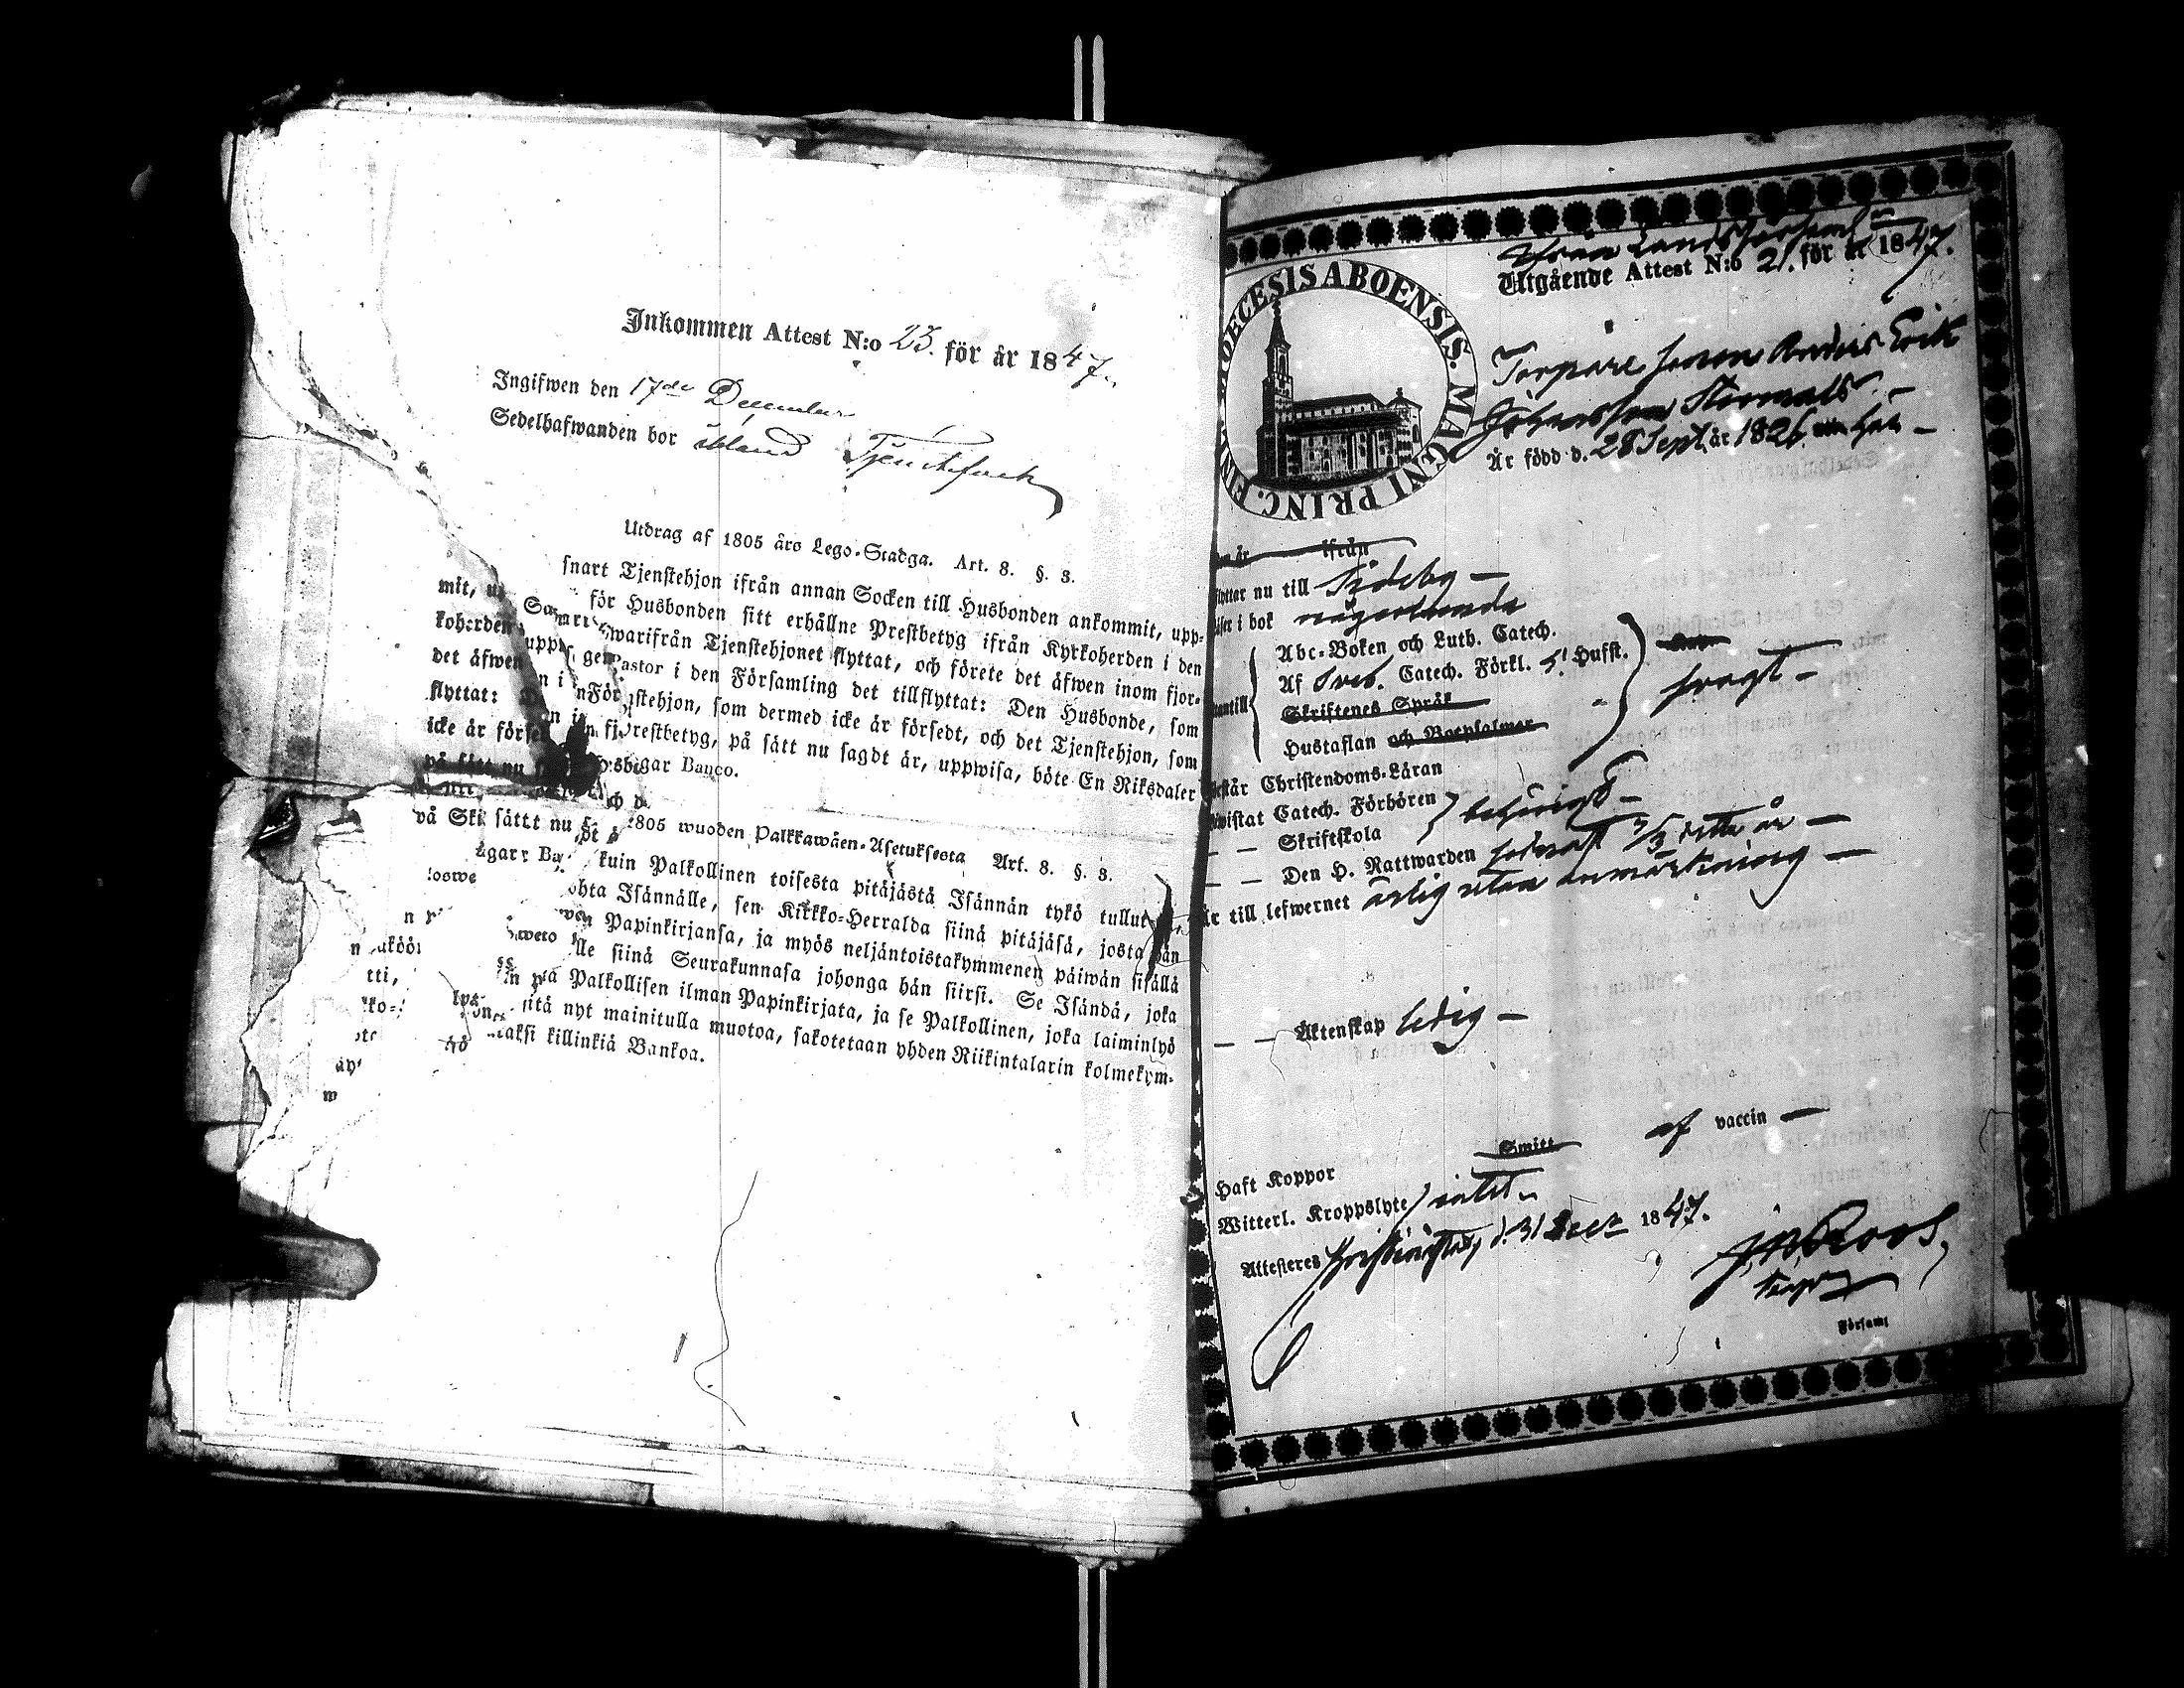 Inkommen Attest N:o 23. för år 1847.
Ingifwen den 17de December
Sedelhafwanden bor ibland Tjenstefolck
Utdrag af 1805 års Lego-Stadga. Art. 8. §. 3.
snart Tjenstehjon ifrån annan Socken till Husbonden ankommit, upp-
för Husbonden sitt erhållne Prestbetyg ifrån Kyrkoherden i den
hwarifrån Tjenstehjonet flyttat, och förete det äfwen inom fjor-
Pastor i den Församling det tillflyttat: Den Husbonde, som
stehjon, som dermed icke är försedt, och det Tjenstehjon, som
Prestbetyg, på sätt nu sagdt är, uppwisa, böte En Riksdaler
gar Banco.
1805 wuoden Palkkawäen-Asetuksesta Art. 8. §. 3.
kuin Palkollinen toisesta pitäjästä Isännän tykö tullut
ohta Isännälle, sen Kirkko-Herralda siinä pitäjäsä, josta hän
Papinkirjansa, ja myös neljäntoistakymmenen päiwän sisällä
lle siinä Seurakunnasa johonga hän siirsi. Se Isändä, joka
Palkollisen ilman Papinkirjata, ja se Palkollinen, joka laiminlyö
sitä nyt mainitulla muotoa, sakotetaan yhden Riikintalarin kolmekym-
maksi killinkiä Bankoa.
DIOECESIS ABOENSIS. MAGNI PRINC. FINL.
från Landsförsaml:n
Utgående Attest N:o 21. för år 1847.
Torpare sonen Anders Erik
Johansson Stormats
Är född d. 28 Sept. år 1826. har
ifrån
flyttar nu till Sideby
läser i bok någorlunda
Abc-Boken och Luth. Catech.
Af Sveb. Catech. Förkl. 5! Hufst.
Skriftenes Språk
Hustaflan och Botpsalmer
svagt
Christendoms-Läran
bewistat Catech. Förhören
Skriftskola
behörigt
— — Den H. Nattwarden sednast 7/3 detta år
är till lefwernet ärlig utan anmärkning
— — Äktenskap ledig
Haft Koppor Smitt af vaccin
Witterl. Kroppslyte intet
Attesteras Christinestad, d. 31 Decr 1847.
Roos,
Församl